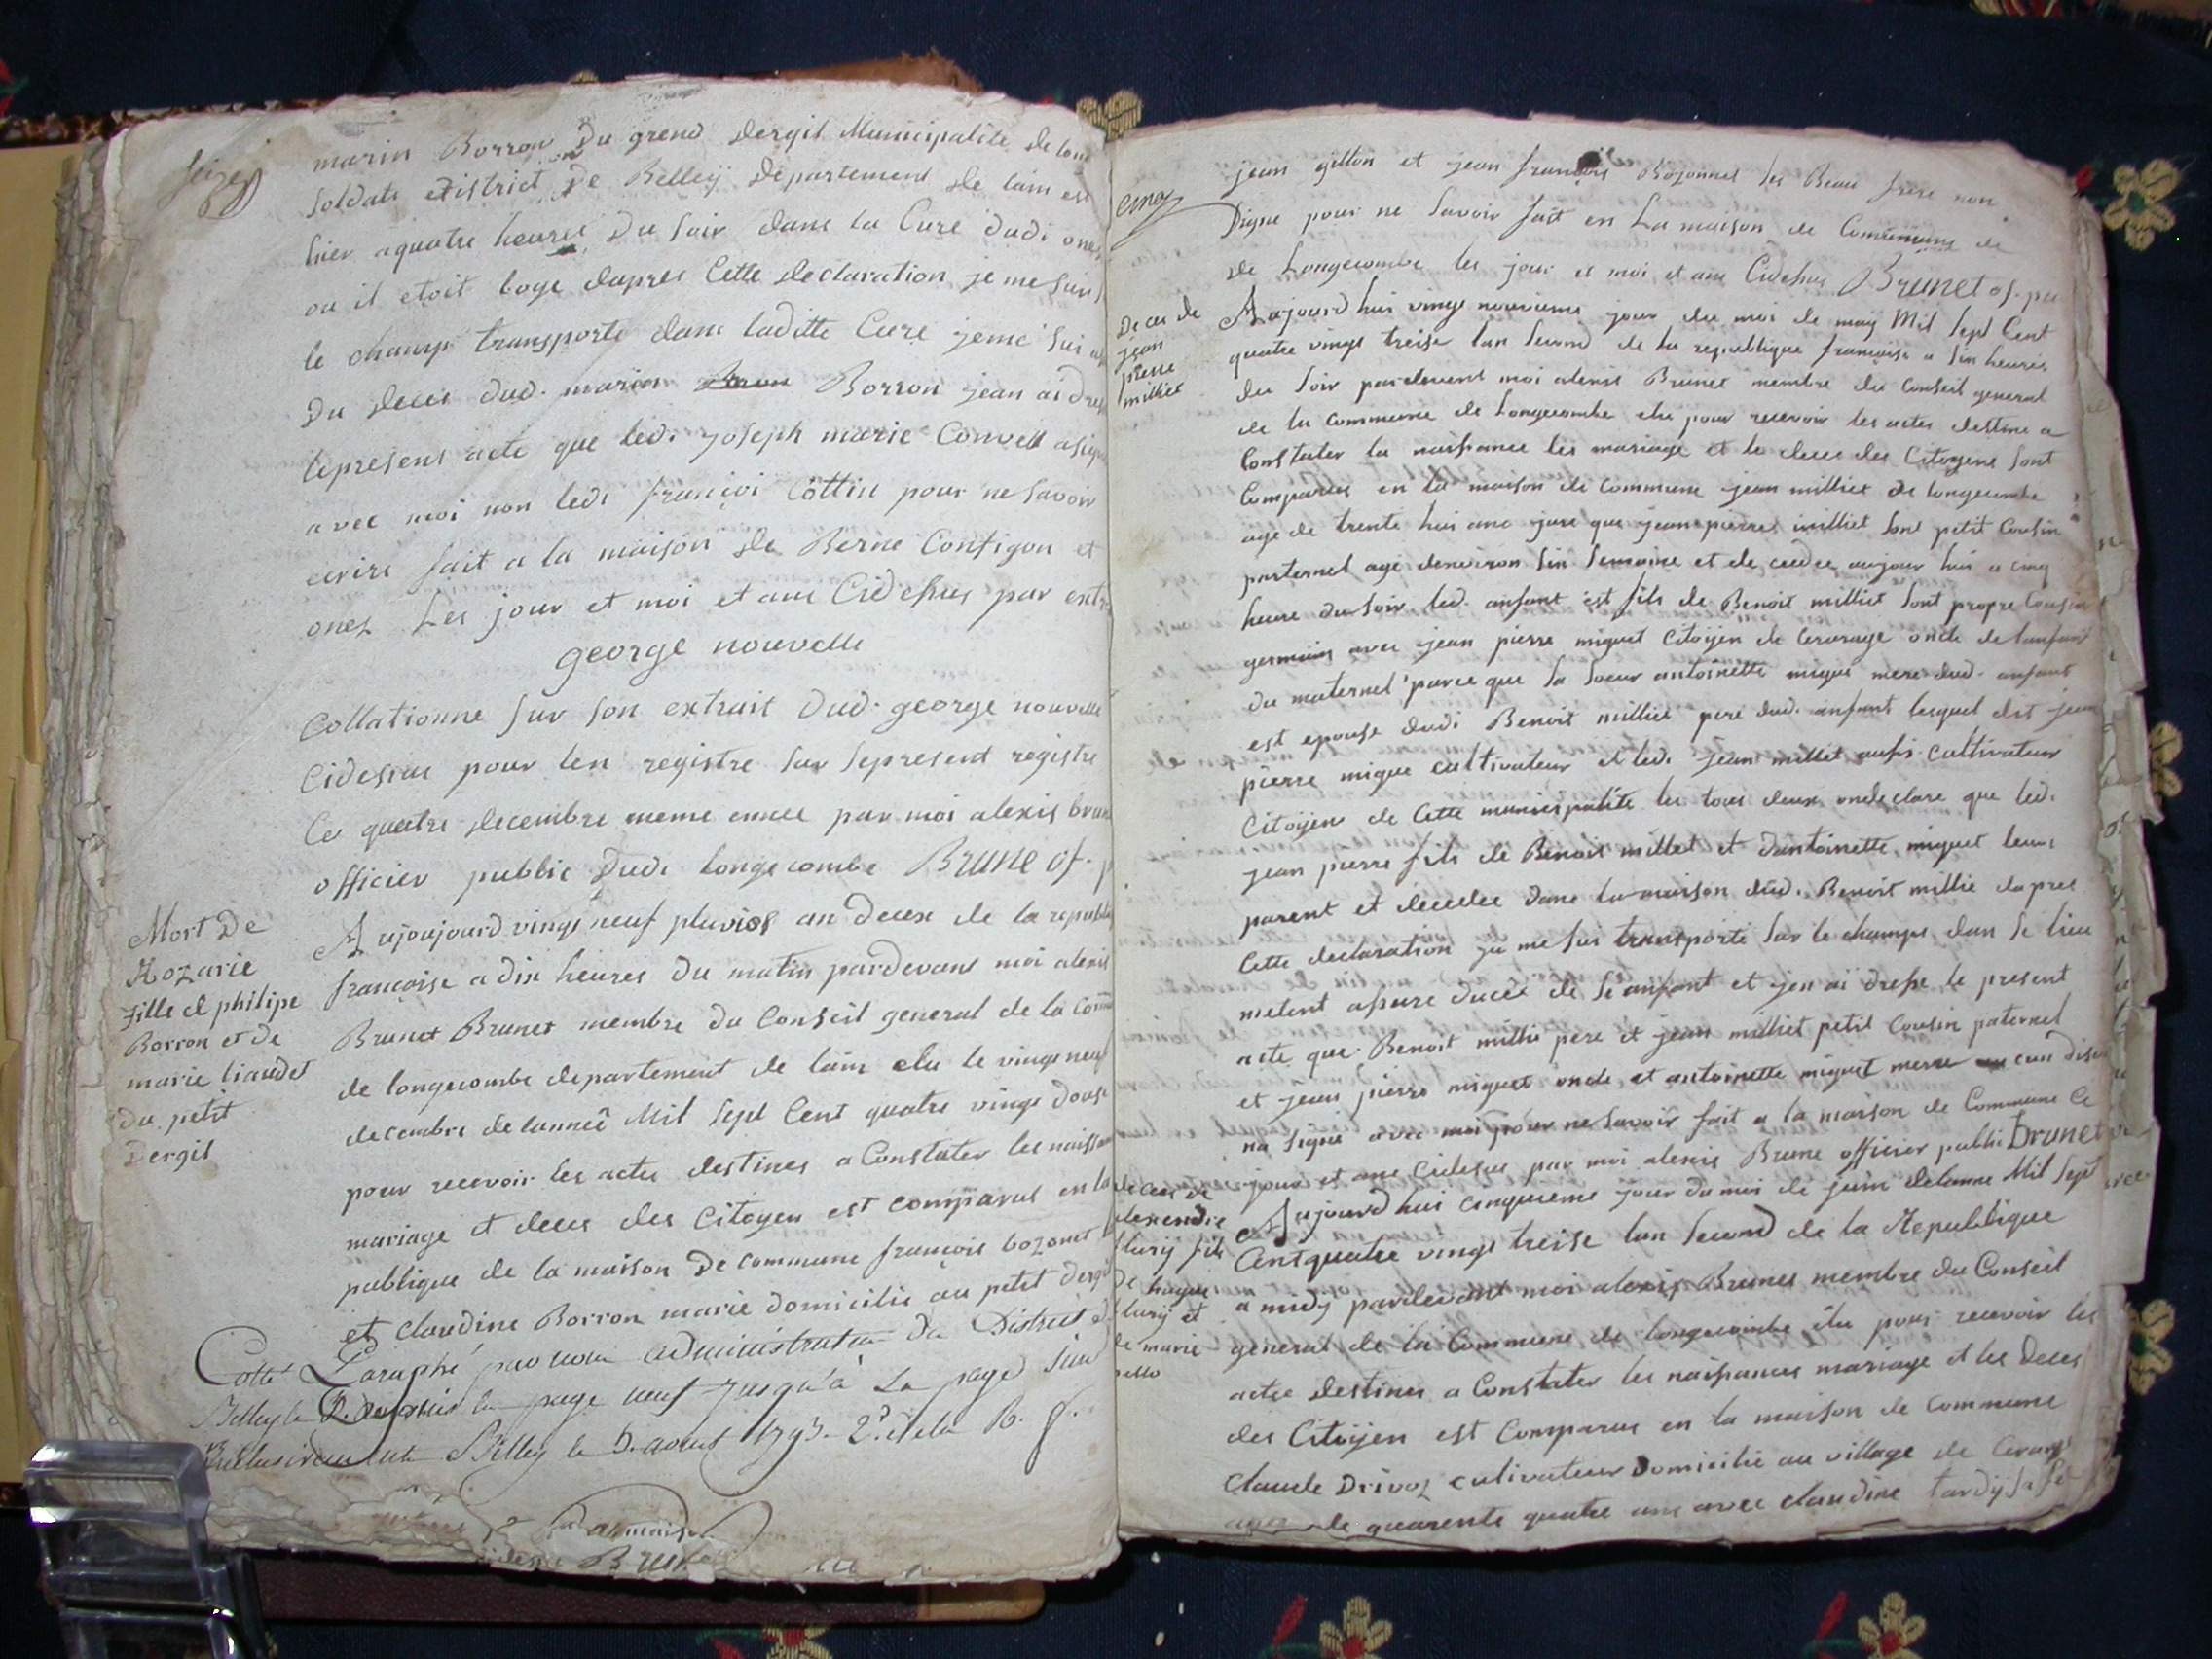 seize
marin Borron Du grend dergil Municipalite de lon
soldats district De Belleÿ Departement de lain est
hier a quatre heures Du soir dans la Cure dudi onez
ou il etoit loge dapres Cette declaration je me suis
le champ transporté dans laditte Cure jeme sui
Du deces dud. marin Borron jean ai dres
lepresent acte que ledi joseph marie Convert a signe
avec moi non ledi françoi Cottin pour ne savoir
ecrire fait a la maison de Berne Confignon et
onez Les jour et moi et ans Cidesus par extr
george nouvelle
Collationne sur son extrait dud. george nouvelle
Cidesus pour len registre sur lepresent registre
Ce quatre decembre meme annee par moi alexis brun
officier public Dudi longecombe Brune of. p
Mort De
Rozarie
fille d philipe
Borron et de
marie liaudet
du petit
Dergil
Aujoujourd vingt neuf pluvios an Deux de la republi
francoise a dix heures Du matin pardevant moi alexis
Brunet Brunet membre du Conseil general de la Com
de longecombe departement de lain elu le vingt neuf
decembre de lannee Mil sept Cent quatre vingt douse
pour recevoir les actes destines a Constater les naissan
mariage et deces des Citoyen est comparus en la
publique de la maison De commune françois bozonet
et claudine Borron marie domicilie au petit dergil
Cotté Paraphé par nous administrateur du District d
Belley la page neuf jusqu'à la page
inclusivement Belley le 5. aout 1793. 2.e de la R. f.
Brun
cinq
jean gitton et jean françois Bozonnet ses Beau frere non
Digne pour ne savoir fait en La maison de Commune de
de Longecombe les jour et moi et ans Cidesus Brunet of. pu
Deces de
jean
pierre
milliet
Aujourdhui vingt nouvieme jour du moi de may Mil sept Cent
quatre vingt treise lan second de la republique francoise a six heures
du soir pardevant moi alexis Brunet membre du Conseil general
de la commune de Longecombe elu pour recevoir les actes destine a
Constater la naissance les mariage et le deces des Citoyens sont
Comparus en la maison de commune jean milliet de longecombe
agé de trente hui ans jure que jean pierre milliet sont petit Cousin
parternel agé denviron six semaine et de cedee aujour hui a cinq
heure du soir led. anfant est fils de Benoit milliet sont propre Cousin
germain avec jean pierre miguet Citoyen de oncle de lanfant
du maternel parce que sa soeur antoinette migue mere dud. anfant
est epouse dudi Benoit milliet pere dud. anfant lesquel dit jean
pierre migue cultivateur et led. jean millet aussi cultivateur
Citoyens de Cette municipalite les tous deux on declare que led.
jean pierre fils de Benoit millet et dantoinette miguet leurs
parent et decedee dans la maison dud. Benoit millie dapres
Cette declaration je me sui transporte sur le champs dan le lieu
metent apure duces de le anfant et jen ai dresse le present
acte que Benoit millie pere et jean milliet petit Cousin paternel
et jean pierre miguet oncle et antoinette miguet merre
na signe avec moi pour ne savoir fait a la maison de Commune Ce
jour et ans cidesus par moi alexis Brune officier publi Brunet
deces de
alexendre
fils
De hugue
et
de marie
Aujourdhui cinquieme jour du moi de juin delanne Mil sept
Cent quatre vingt treise lan second de la Republique
a midy pardevant moi alexis Brunet membre du Conseil
general de la Commune de longecombe elu pour recevoir les
actes destines a Constater les naissances mariage et les Deces
des Citoyen est Comparus en la maison de commune
Claude Drivoz cultivateur Domicilie au village de
de quarente quatre ans avec claudine tardy